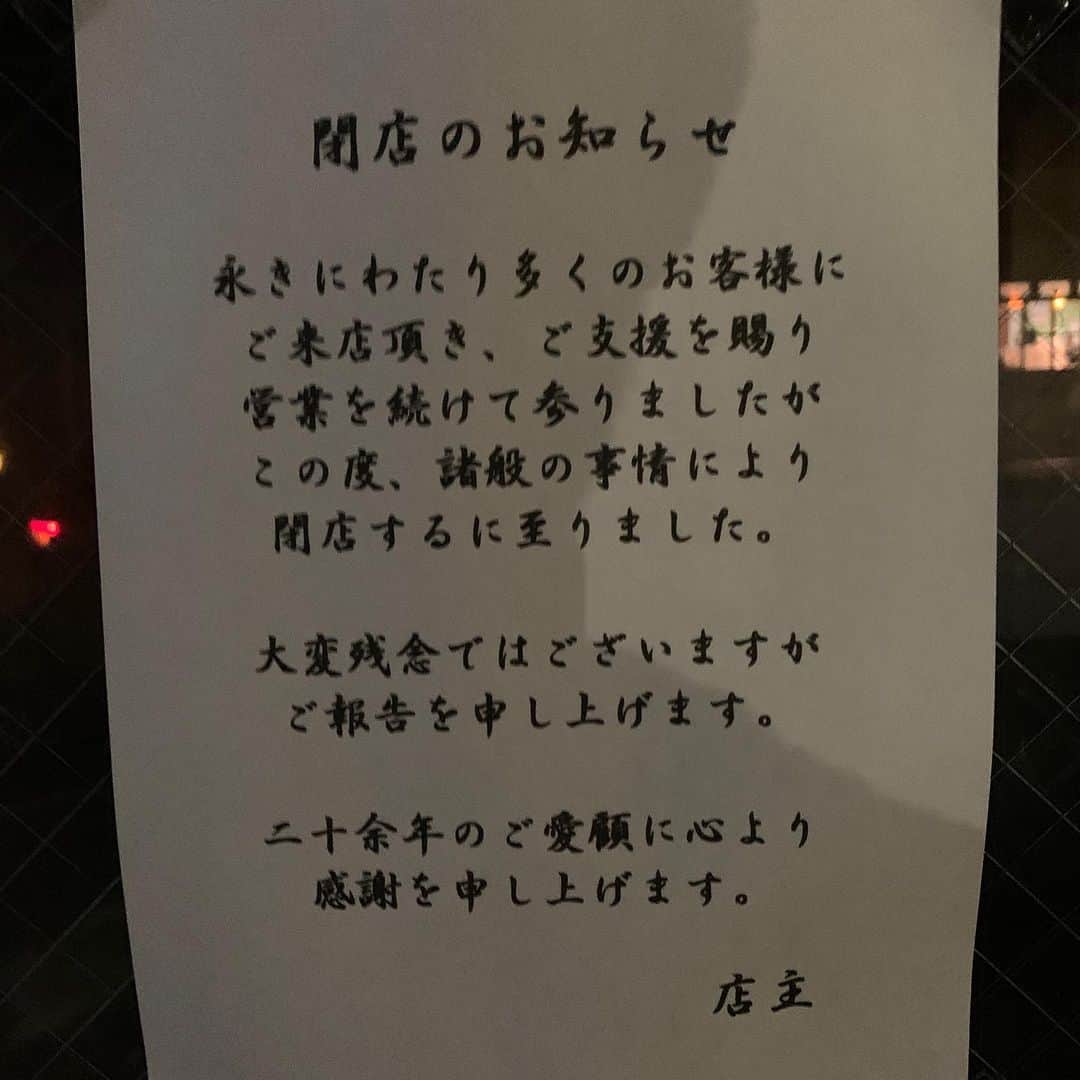 閉店のお知らせ
永きにわたり多くのお客様に
ご来店頂き、ご支援を賜り
営業を続けて参りましたが
この度、諸般の事情により
閉店するに至りました。
大変残念ではございますが
ご報告を申し上げます。
二十余年のご愛顧に心より
感謝を申し上げます。
店主